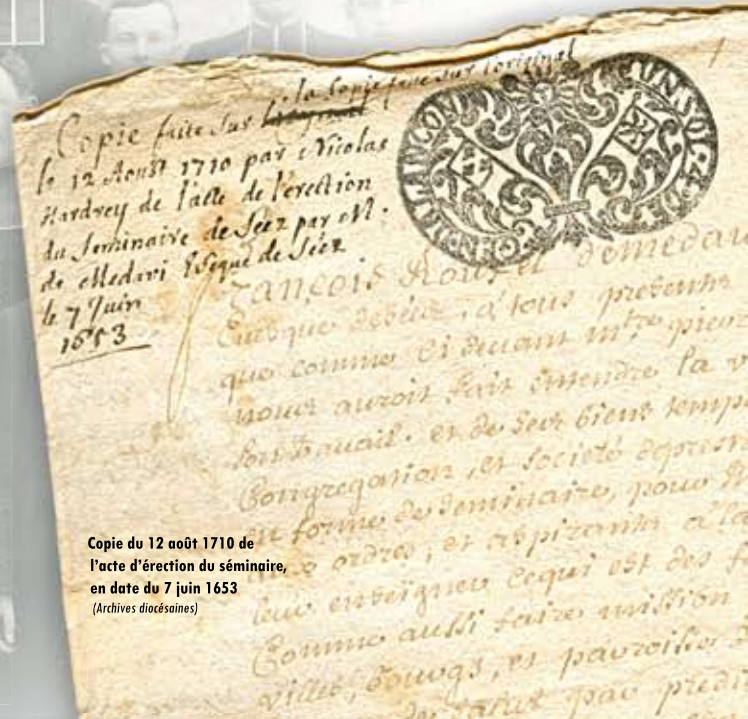 Copie faite sur la Copie faite sur l'original
le 12 Aoust 1710 par Nicolas
Hardrey de l'acte de l'erection
du Seminaire de Séez par M.
de Medavi Eveque de Séez
le 7 Juin
1653
GEN DALANCON UN SOL 4 DE
françois Rouxel de medav
Evesque de séez, a tous presents
que comme ci devant mtre pierr
nous auroit fait entendre la v
son travail et de ses biens temp
Congregation, et societé de prest
en forme de seminaire, pour
ordres, et aspirants a la
leur enseigner ce qui est des f
Comme aussi faire mission
villes, bourgs, et parroisses
salut par predi
Copie du 12 août 1710 de
l'acte d'érection du séminaire,
en date du 7 juin 1653
(Archives diocésaines)